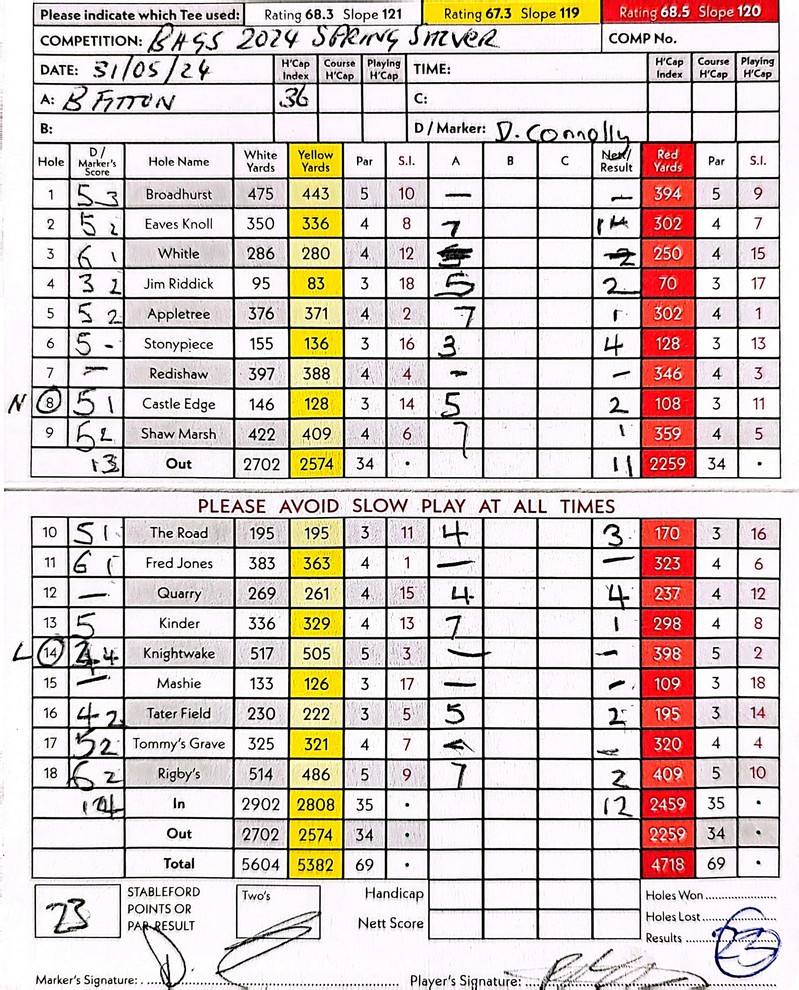 Please indicate which Tee used: Rating 68.3 Slope 121 Rating 67.3 Slope 119 Rating 68.5 Slope 120
COMPETITION: BHGS 2024 SPRING SILVER COMP No.
DATE: 31/05/24 H'Cap Index Course H'Cap Playing H'Cap TIME: H'Cap Index Course H'Cap Playing H'Cap
A: B FITTON 36 C:
B: D / Marker: D. Connolly
Hole D / Marker's Score Hole Name White Yards Yellow Yards Par S.I. A B C Nett/ Result Red Yards Par S.I.
1 5 3 Broadhurst 475 443 5 10 — — 394 5 9
2 5 2 Eaves Knoll 350 336 4 8 7 1 302 4 7
3 6 1 Whitle 286 280 4 12 250 4 15
4 3 2 Jim Riddick 95 83 3 18 5 2 70 3 17
5 5 2 Appletree 376 371 4 2 7 1 302 4 1
6 5 - Stonypiece 155 136 3 16 3 4 128 3 13
7 — Redishaw 397 388 4 4 - — 346 4 3
N 8 5 1 Castle Edge 146 128 3 14 5 2 108 3 11
9 5 2 Shaw Marsh 422 409 4 6 7 1 359 4 5
13 Out 2702 2574 34 • 11 2259 34 •
PLEASE AVOID SLOW PLAY AT ALL TIMES
10 5 1 The Road 195 195 3 11 4 3 170 3 16
11 6 1 Fred Jones 383 363 4 1 — — 323 4 6
12 — Quarry 269 261 4 15 4 4 237 4 12
13 5 Kinder 336 329 4 13 7 1 298 4 8
L 14 4 Knightwake 517 505 5 3 — - 398 5 2
15 — Mashie 133 126 3 17 — - 109 3 18
16 4 2 Tater Field 230 222 3 5 5 2 195 3 14
17 5 2 Tommy's Grave 325 321 4 7 — 320 4 4
18 6 2 Rigby's 514 486 5 9 7 2 409 5 10
In 2902 2808 35 • 12 2459 35 •
Out 2702 2574 34 • 2259 34 •
Total 5604 5382 69 • 4718 69 •
23 STABLEFORD POINTS OR PAR RESULT Two's Handicap Holes Won
Nett Score Holes Lost
Results 23
Marker's Signature: Player's Signature: